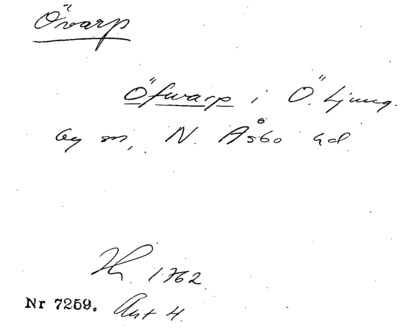 Övarp
Öfwarp i Ö. Ljung-
by sn, N. Åsbo hd
1762.
Nr 7259. Ant 4.